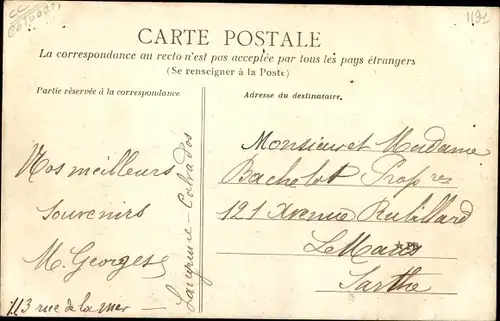 CC
Calvados
1191
CARTE POSTALE
La correspondance au recto n'est pas acceptée par tous les pays étrangers
(Se renseigner à la Poste)
Partie réservée à la correspondance
Adresse du destinataire.
Nos meilleurs
souvenirs
M. Georges
113 rue de la mer
Langrune-Calvados
Monsieur et Madame
Bachelot Propres
121 Avenue Rubillard
Le Mans
Sarthe